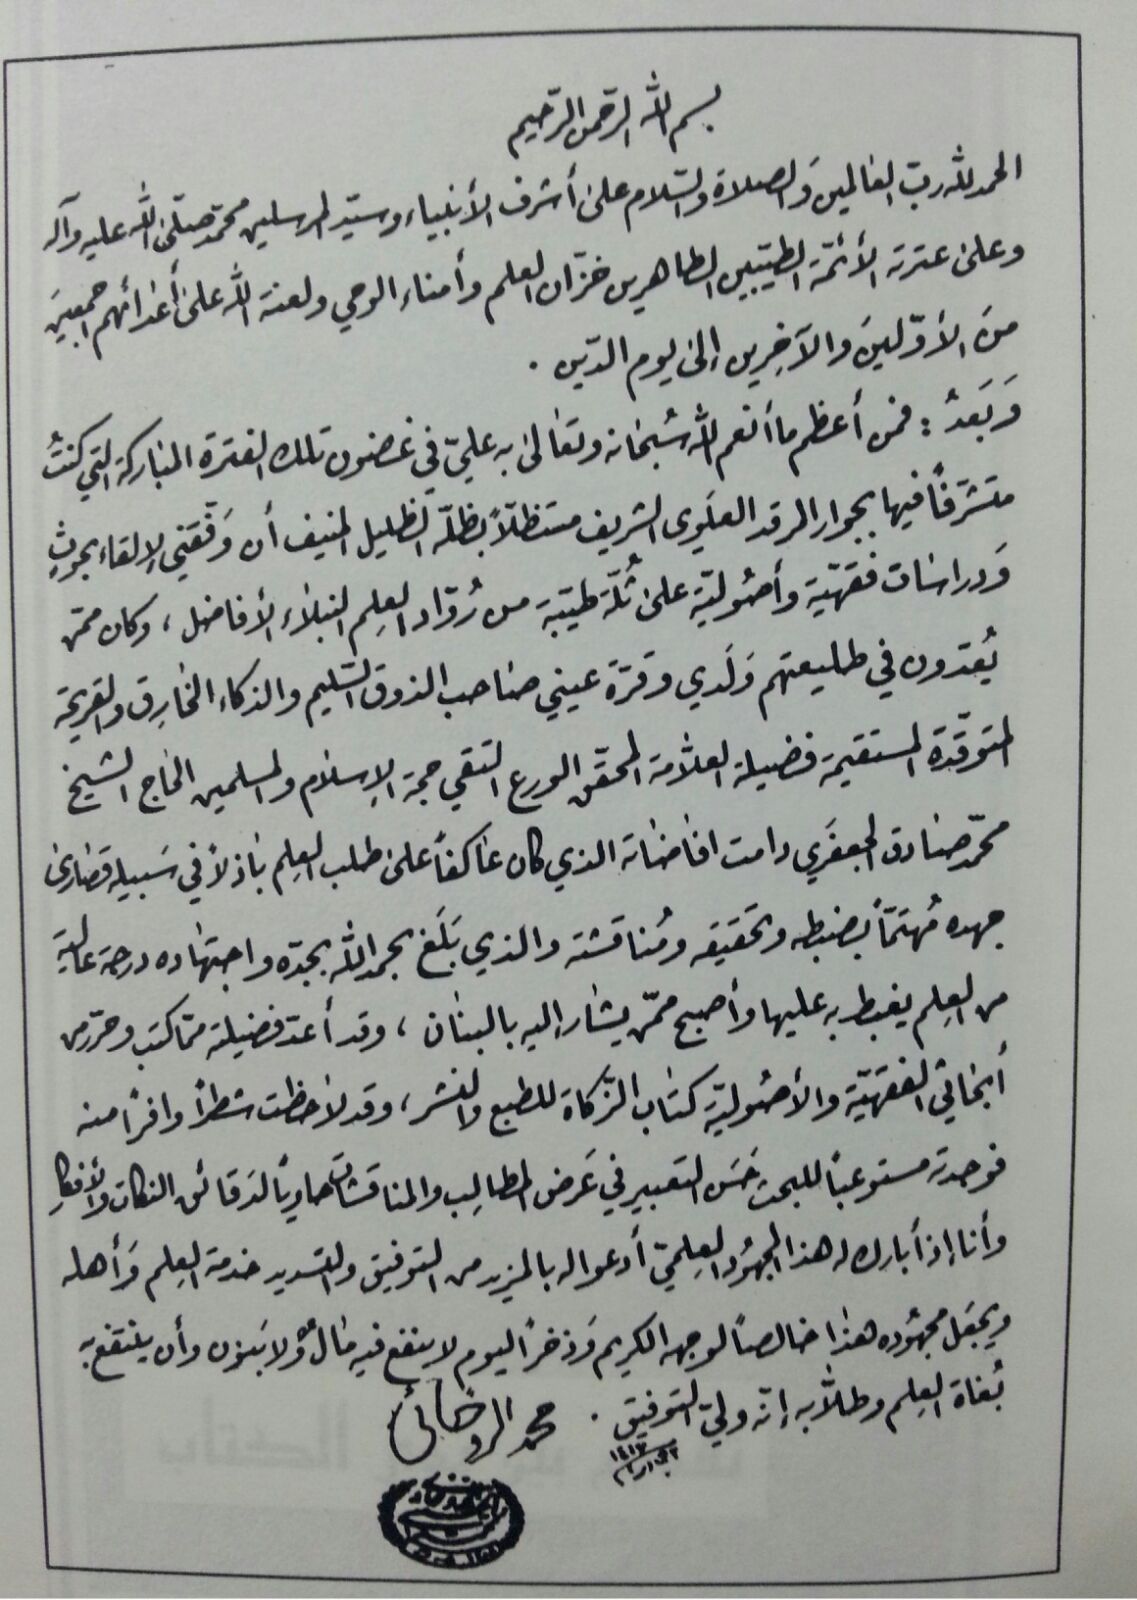 بسم الله الرحمن الرحيم
الحمد لله رب العالمين والصلاة والسلام على أشرف الأنبياء وسيد المرسلين محمد صلى الله عليه وآله
وعلى عترته الأئمة الطيبين الطاهرين خزّان العلم وأمناء الوحي ولعنة الله على أعدائهم اجمعين
من الأوّلين والآخرين إلى يوم الدّين .
وَبَعدُ : فمن أعظم ما أنعم الله سُبحانه وتعالى به عليّ في غضون تلك الفترة المباركة التي كنتُ
متشرّفاً فيها بجوار المرقد العلَوي الشريف مستظلّاً بظلّه الظليل المنيف أن وَفّقني لإلقاء بحوثٍ
وَدراسات فقهيّة وأصُوليّة على ثُلّة طيّبة من رُوّاد العِلم النبلاء الأفاضل ، وكان ممّن
يُعَدّون في طليعتهم وَلَدي وقرّة عيني صاحب الذوق السّليم والذكاء الخارِق والقريحة
المتوقّدة المستقيمة فضيلة العلّامة المحقّق الورع التقي حجة الإسلام والمسلمين الحاج الشيخ
محمّد صادق الجعفَري دامت افاضاته الذي كان عاكفاً على طلب العِلم باذلاً في سَبيله قصارى
جهده مُهتمّاً بضبطه وتحقيقه ومُناقشته والذي بَلَغ بحمد الله بجدّه واجتهاده درجة عالية
من العِلم يغبط به عليها وأصبح ممّن يشار إليه بالبنان ، وقد أعدّ فضيلته ممّا كتب وحرّر من
أبحاثي الفقهيّة والأصُوليّة كتاب الزّكاة للطبع والنشر ، وقد لاحظت شطراً وافراً منه
فوجدته مستوعباً للبحث حَسَن التعبير في عَرض المطالِب والمناقشات حاوياً لدَقائق النكات والأفكارِ
وأنا إذ أبارك له هذا المجهُود العِلميّ أدعو له بالمزيد من التوفيق والتسديد خدمة العِلم وَأهله
ويجعَل مجهُوده هذا خالصاً لوجهه الكريم وَذخراً ليوم لا ينفع فيه مالٌ وَلا بَنون وأن ينتفع به
بُغاة العِلم وطلّابه إنّه وليّ التوفيق .
محمد الروحاني
١٤١٧